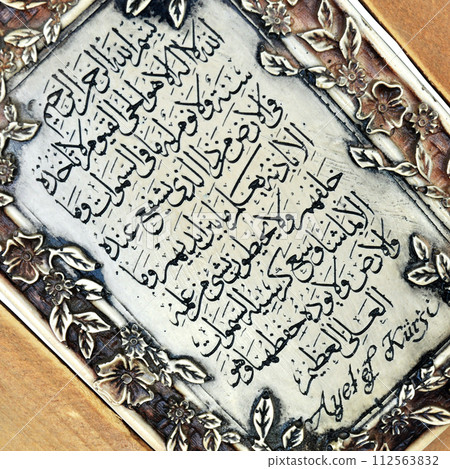 بسم الله الرحمن الرحيم
الله لا اله الا هو الحى القيوم لا تأخذه
سنة ولا نوم له ما فى السموات وما
فى الارض من ذا الذى يشفع عنده
الا باذنه يعلم ما بين ايديهم وما
خلفهم ولا يحيطون بشئ من علمه
الا بما شاء وسع كرسيه السموات
والارض ولا يؤده حفظهما وهو
العلى العظيم
Ayet'el Kürsi
112563832